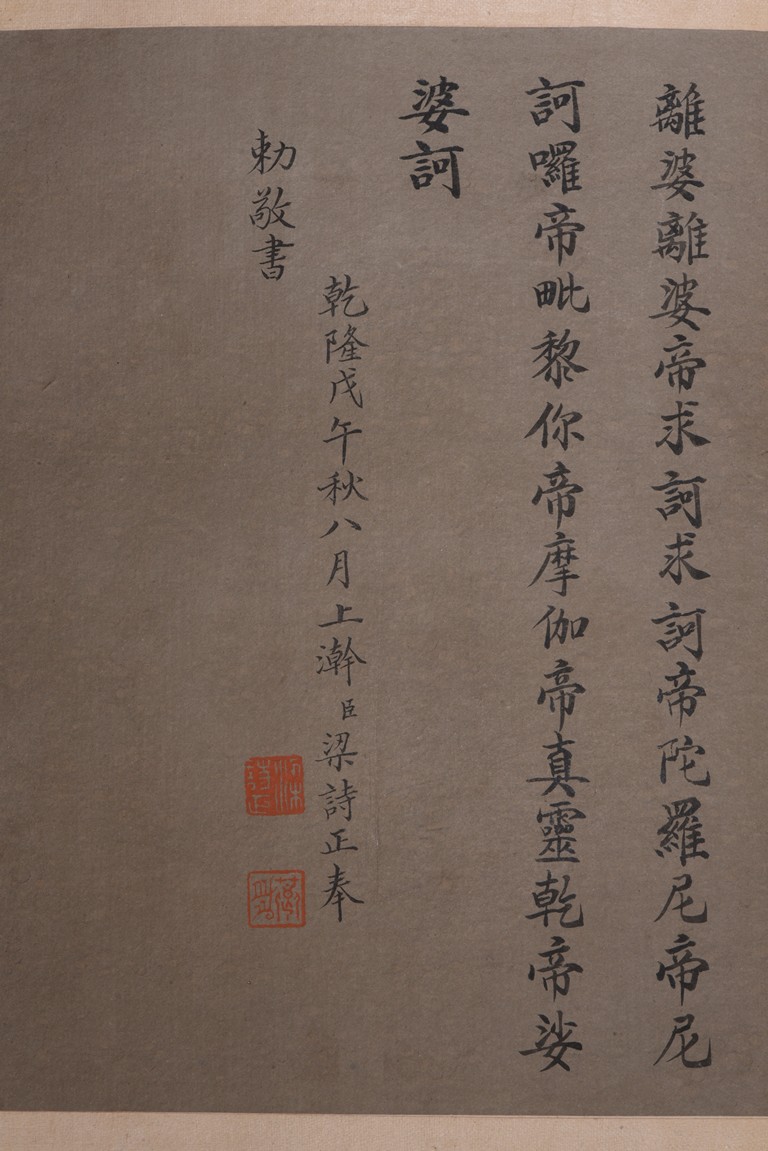 離婆離婆帝求訶求訶帝陀羅尼帝尼
訶囉帝毗黎你帝摩伽帝真靈乾帝娑
婆訶
乾隆戊午秋八月上澣臣梁詩正奉
勅敬書
梁詩正